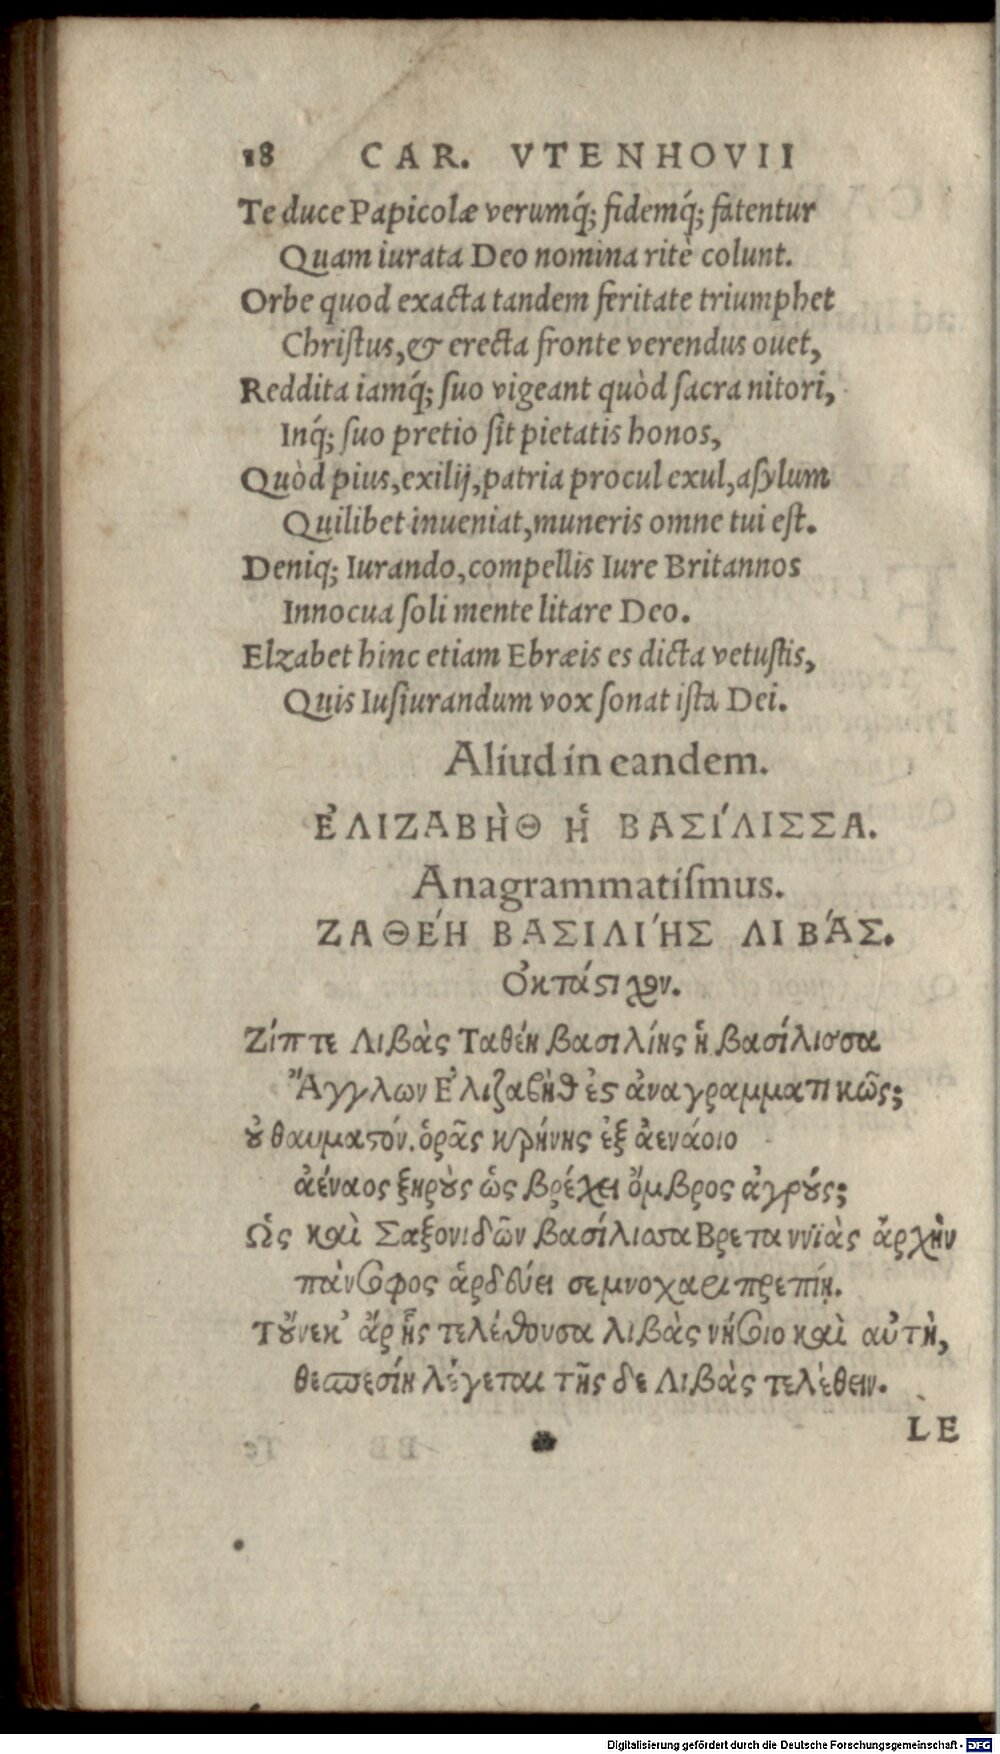 18 CAR. VTENHOVII
Te duce Papicolæ verumq́; fidemq́; fatentur
Quam iurata Deo nomina ritè colunt.
Orbe quod exacta tandem feritate triumphet
Chriſtus, & erecta fronte verendus ouet,
Reddita iamq́; ſuo vigeant quòd ſacra nitori,
Inq́; ſuo pretio ſit pietatis honos,
Quòd pius, exilij, patria procul exul, aſylum
Quilibet inueniat, muneris omne tui eſt.
Deniq; Iurando, compellis Iure Britannos
Innocua ſoli mente litare Deo.
Elzabet hinc etiam Ebræis es dicta vetuſtis,
Quis Iuſiurandum vox ſonat iſta Dei.
Aliud in eandem.
ἘΛΙΖΑΒῊΘ Ἡ ΒΑΣΊΛΙΣΣΑ.
Anagrammatiſmus.
ΖΑΘΈΗ ΒΑΣΙΛΊΗΣ ΛΙΒΆΣ.
Ὀκτάστιχον.
Ζίπτε Λιβὰς Ταθέη βασιλίης ἡ βασίλισσα
Ἄγγλων Ἐλιζαβὴθ ἐς ἀναγραμματικῶς;
οὐ θαυματόν. ὁρᾷς κρήνης ἐξ ἀενάοιο
ἀέναος ξηροὺς ὡς βρέχει ὄμβρος ἀγρούς;
Ὣς καὶ Σαξονιδῶν βασίλισσα Βρεταννϊὰς ἀρχὴν
πάνσοφος ἀρδεύει σεμνοχαριπρεπίῃ.
Τοὔνεκ' ἄρ' ἧς τελέθουσα λιβὰς νήσοιο καὶ αὐτὴ,
θεσπεσίη λέγεται τῆς δε Λιβὰς τελέθειν.
LE
Digitalisierung gefördert durch die Deutsche Forschungsgemeinschaft - DFG